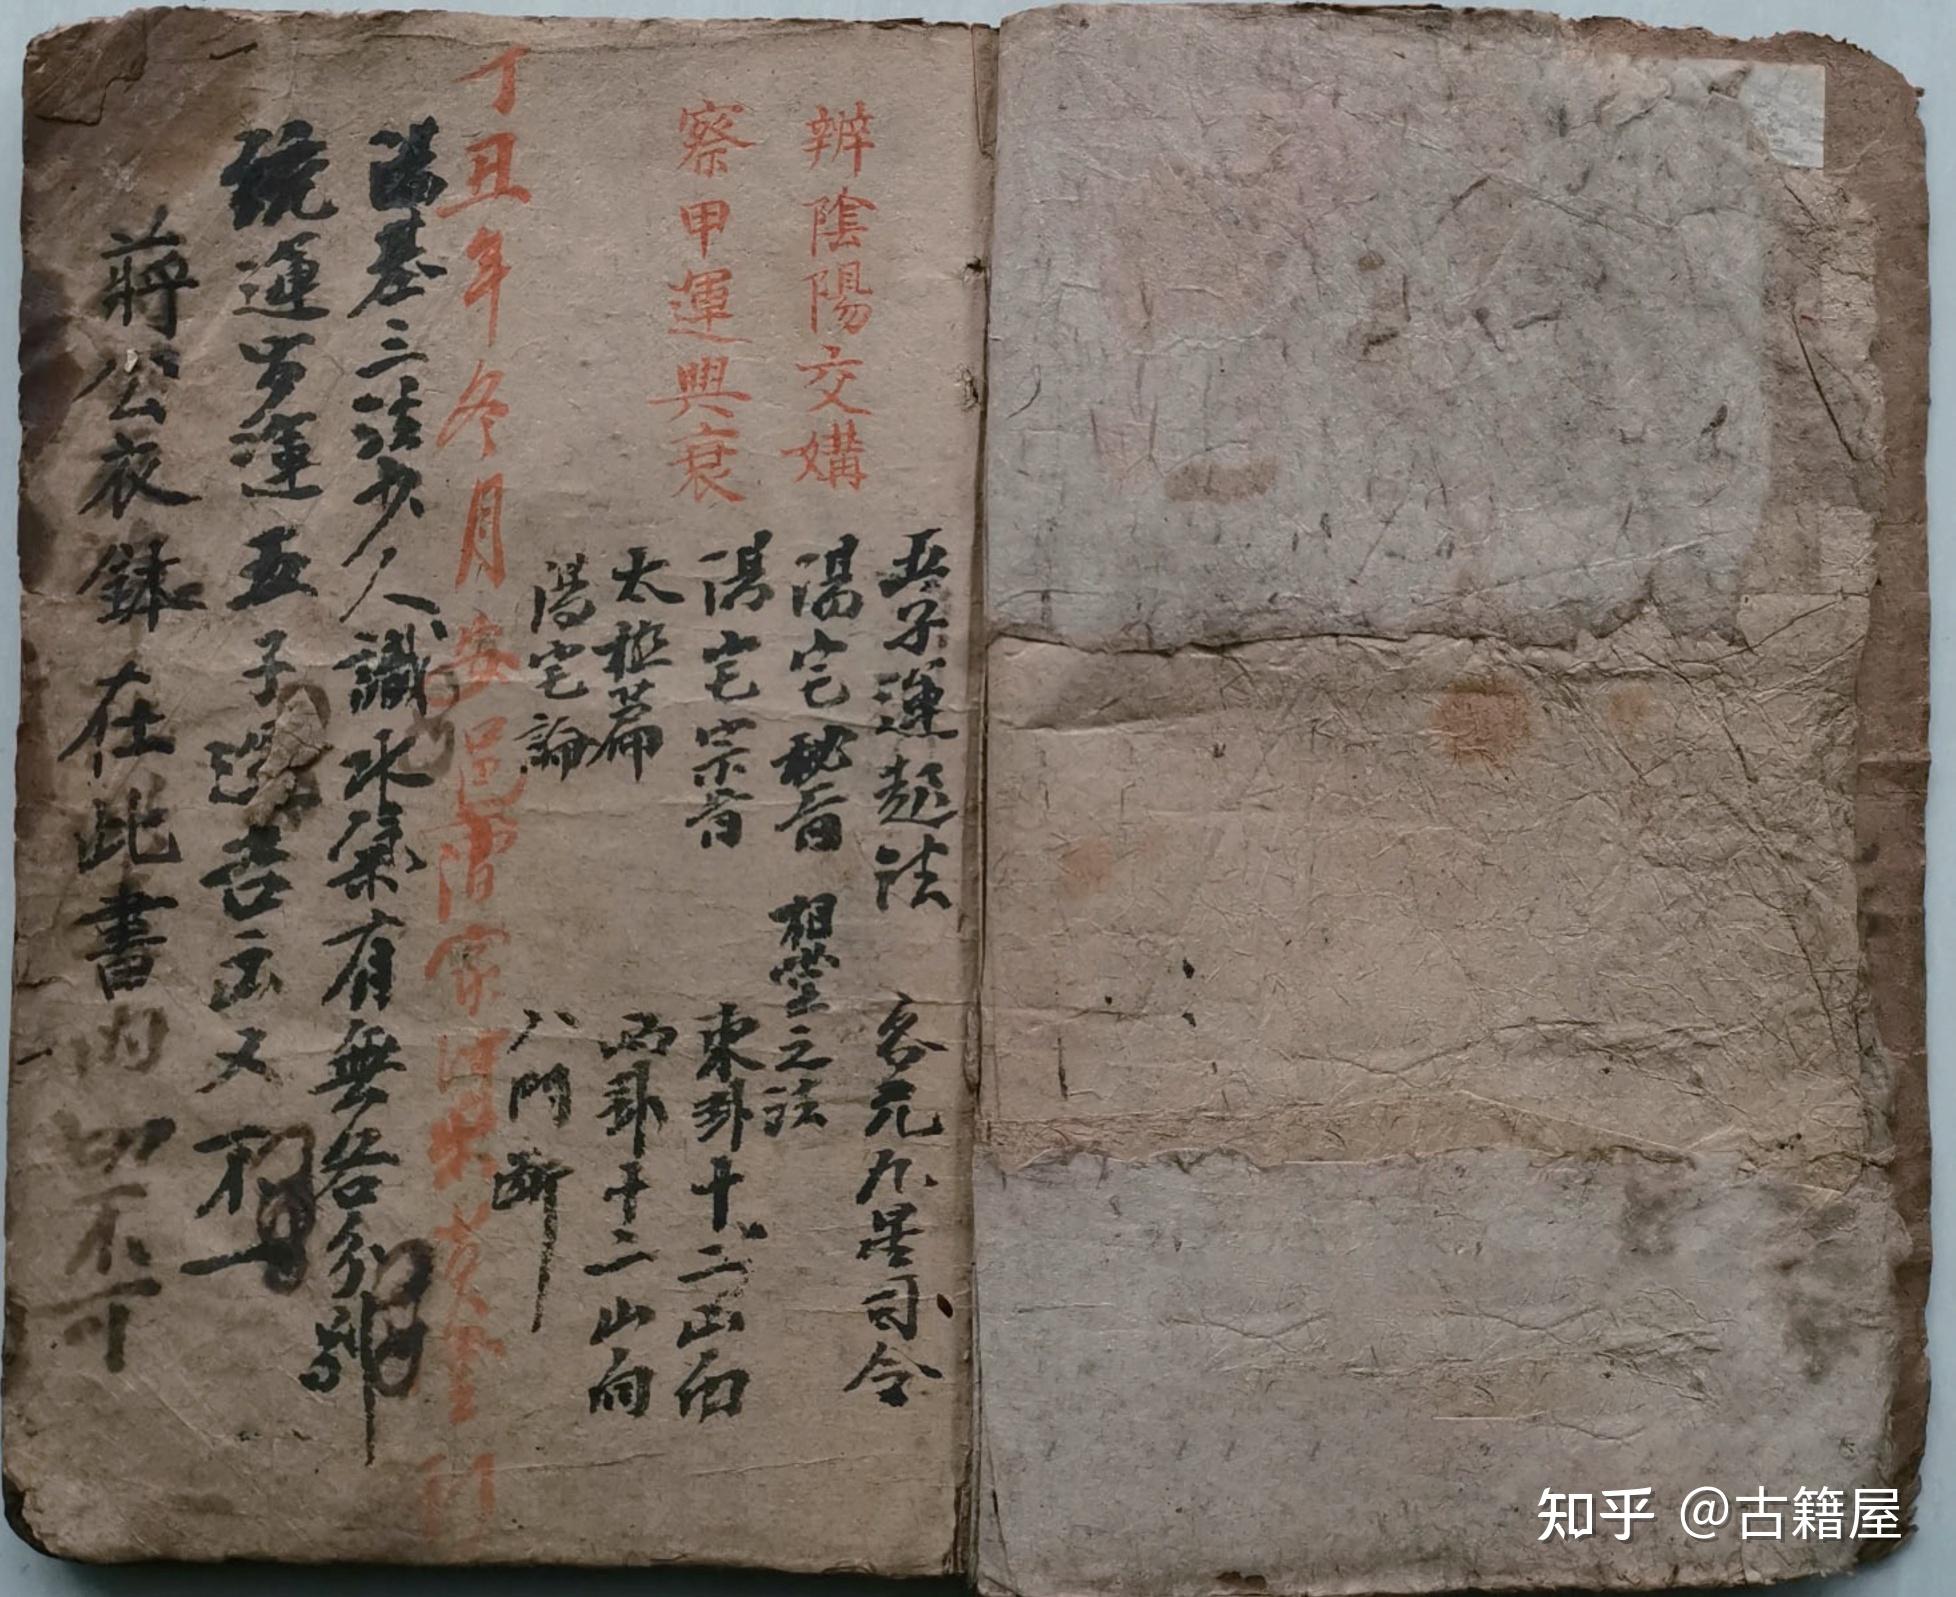 辨陰陽交媾
察甲運興衰
五子運起法
各元九星司令
陽宅秘旨
相堂之法
陽宅宗旨
東卦十二山向
太極篇
西卦十二山向
陽宅論
八門斷
丁丑年冬月安邑
陽基三法少人識 水氣有無各分別
統運岁運五子運 吉凶又不一
蔣公衣鉢在此書内 切不可
知乎 @古籍屋